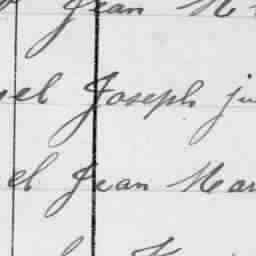 Jean M
el Joseph ju
el Jean Mar